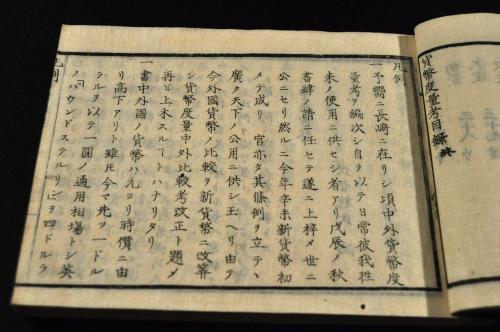 貨幣度量考目録 終
凡例
一予嚮ニ長崎ニ在リシ頃中外貨幣度
量考ヲ編次シ自ラ以テ日常彼我往
来ノ便用ニ供セシ者アリ戊辰ノ秋
書肆ノ請ニ任セテ遂ニ上梓メ世ニ
公ニセリ然ルニ今年辛未新貨幣初
メテ成リ官亦タ其條例ヲ立テヽ
廣ク天下ノ公用ニ供シ玉ヘリ由テ
今外國貨幣ノ比較ヲ新貨幣ニ改算
シ貨幣度量中外比較考改正ト題メ
再ヒ上木スルヿトハナリタリ
一書中外國ノ貨幣ハ元ヨリ時價ニ由
リ高下アリト雖𪜈今マ先ツ一ドル
ラルヲ以テ一圓ノ通用相場トシ英
ノパウンド、ステルリンヒヲ四ドルラ
凡例